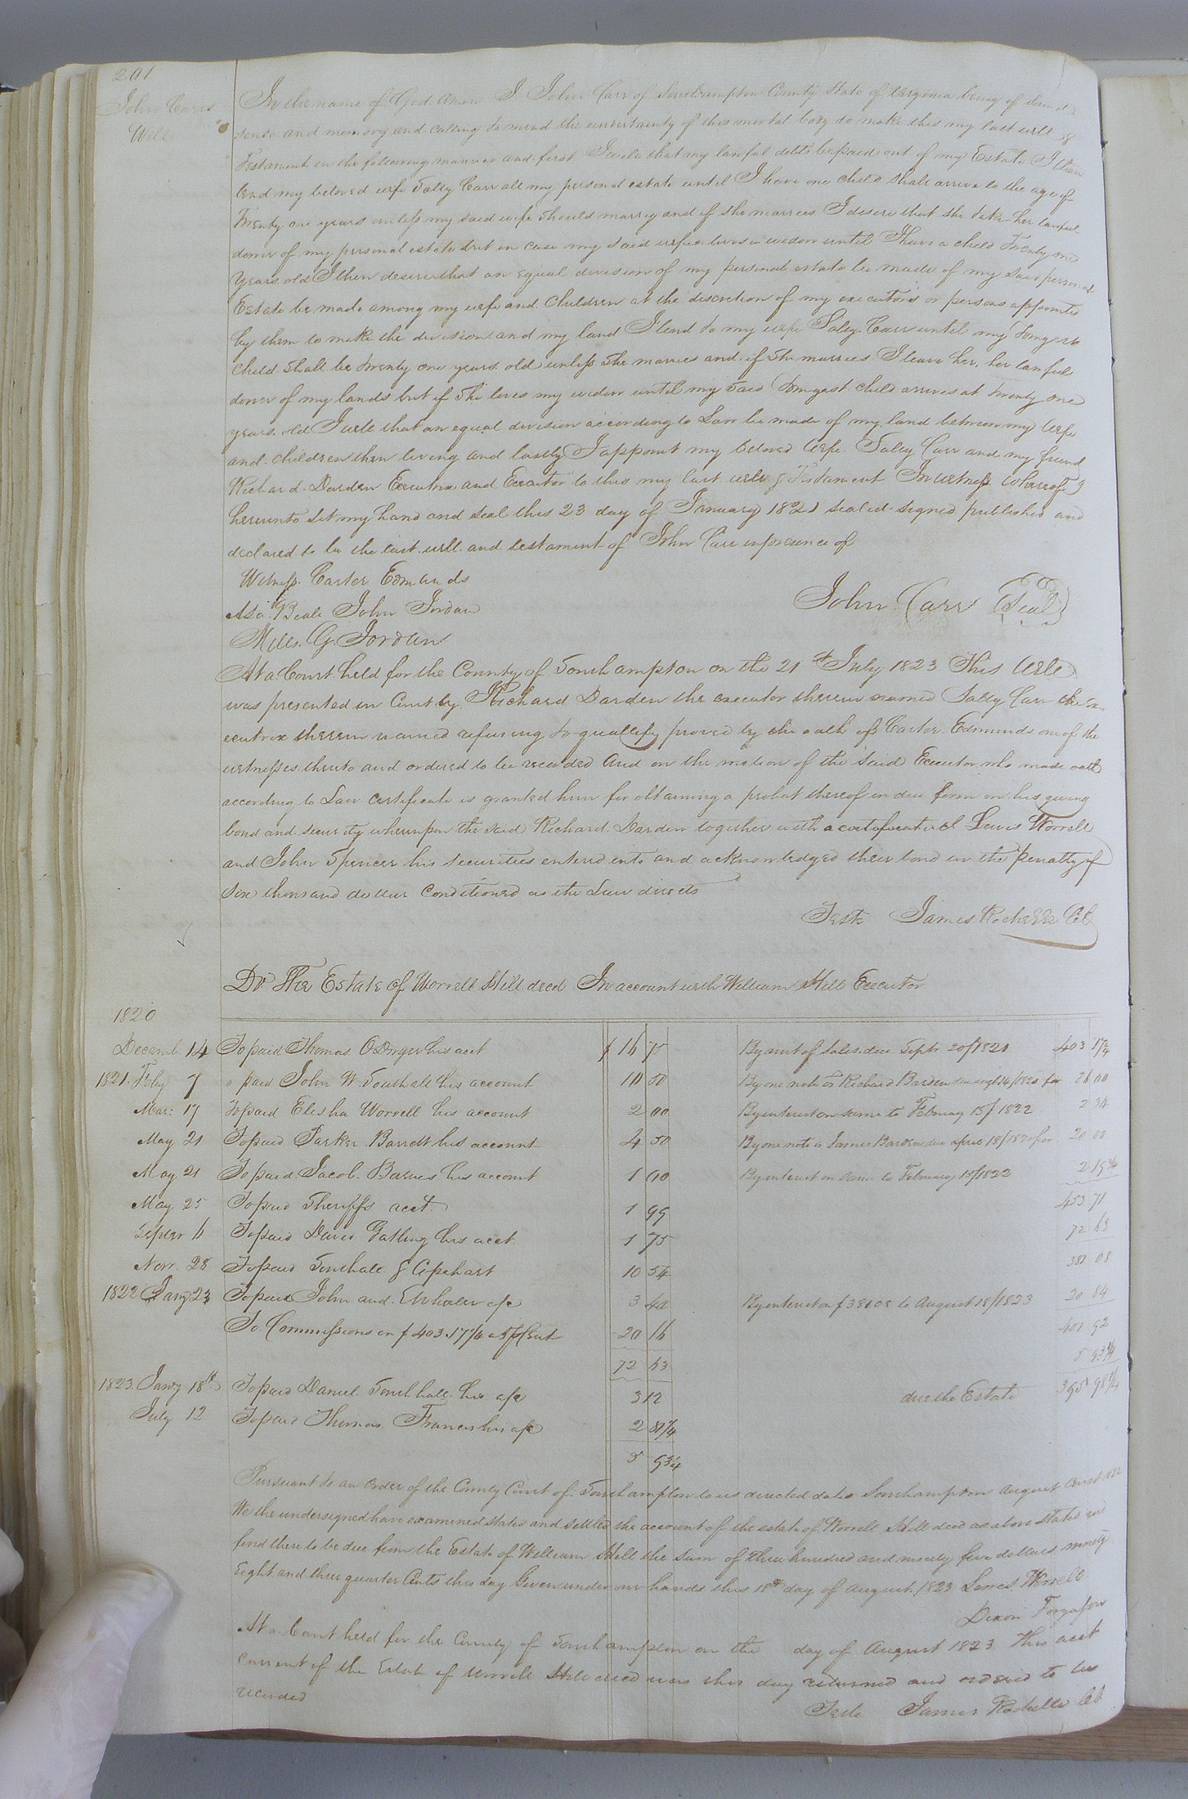 201
John Carrs
Will
In the name of God Amen I John Carr of Southampton County State of Virginia being of sound
sense and memory and calling to mind the uncertainty of this mortal body do make this my last will &
Testament in the following manner and first I wile that my lawful debts be paid out of my Estate I
lend my beloved wife Salley Carr all my personal estate until I have one child shall arrive to the age of
Twenty one years unless my said wife should marry and if she marries I desire that she take her lawful
dower of my personal estate but in case my said wife lives a widow until I have a child Twenty one
years old I then desire that an equal division of my personal estate be made of my said personal
Estate be made among my wife and children at the discretion of my executors or persons appointed
by them to make the divisions and my land I lend to my wife Salley Carr until my Youngest
child shall be twenty one years old unless she marries and if she marries I leave her, her lawful
dower of my lands but if she lives my widow until my said Youngest child arrives at twenty one
years old I wile that an equal division according to Law be made of my land between my Wife
and children then living and lastly I appoint my beloved Wife Salley Carr and my friend
Richard Darden Executrix and Executor to this my last will & Testament In witness whereof I
hereunto set my hand and seal this 23 day of January 1821 sealed signed published and
declared to be the last will and testament of John Carr in presence of
Witness Carter Edmunds
Asa Beale John Jordan
John Carr (Seal)
Miles G Jordan
At a Court held for the County of Southampton on the 21st July 1823 This Wile
was presented in Court by Richard Darden the executor therein named Salley Carr the Ex-
ecutrix therein named refusing to quallify proved by the oath of Carter Edmunds one of the
witnesses thereto and ordered to be recorded And on the motion of the said Executor who made oath
according to Law certificate is granted him for obtaining a probat thereof in due form on his giving
bond and security whereupon the said Richard Darden together with Lewis Worrell
and John Spencer his securities entered into and acknowledged their bond in the penalty of
Six thousand dollar Conditioned as the Law directs
Teste James Rochelle Cl
Dr The Estate of Worrell Hill decd In account with William Hill Executor
1820
Decemb 14 To paid Thomas O Dwyer his acct $ 16 75 By amt of Sales due Septr 20/1821 403 17¾
1821 Feby 7 o paid John W Southall his account 10 50 By one note on Richard Barden 26 00
Mar: 17 To paid Elisha Worrell his account 2 00 By interest on same to February 15/ 1822 2 34
May 21 To paid Parker Barrett his account 4 50 By one note on James Barden due april 18/1820 for 20 00
May 21 To paid Jacob Barnes his account 1 00 By interest on same to February 15/1822 2 19¾
May 25 To paid Sheriffs acct 1 99 453 71
Septemr 6 To paid David Gatling his acct 1 75 72 63
Novr 28 To paid Southall & Capehart 10 54 381 08
1822 Jany 23 To paid John and E Wheeler a/c 3 40 By interest on $ 381 08 to August 18/1823 20 84
To Commissions on $ 403.17¾ a 5 pr Cent 20 16 401 92
72 63 5 93¾
1823 Jany 18th To paid Daniel Southall his a/c 3 12 due the Estate 395 98¾
July 12 To paid Thomas Francis his a/c 2 81¼
5 93¾
Pursuant to an order of the County Court of Southampton to us directed dated Southampton August Court 1822
We the undersigned have examined stated and settled the account of the estate of Worrell Hill decd as above stated and
find there to be due from the Estate of William Hill the sum of three hundred and ninety five dollars ninety
Eight and three quarter Cents this day Given under our hands this 18th day of August 1823 Lewis Worrell
Dixon
At a Court held for the County of Southampton on the day of August 1823 This acct
current of the Estate of Worrell Hill decd was this day returned and ordered to be
recorded
Teste James Rochelle Cl